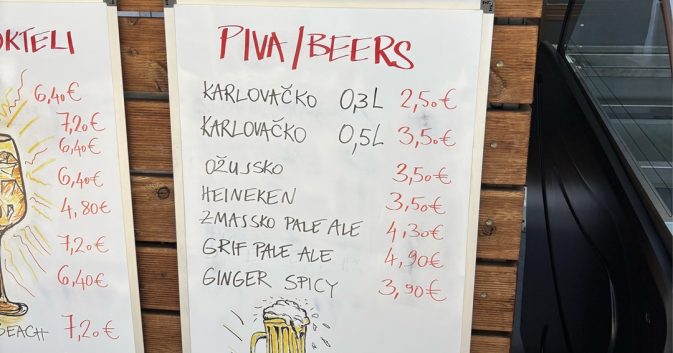 OKTELI
6,40€
7,20€
6,40€
6,40€
4,80€
7,20€
6,40€
BEACH 7,20€
PIVA/BEERS
KARLOVAČKO 0,3L 2,50€
KARLOVAČKO 0,5L 3,50€
OŽUJSKO 3,50€
HEINEKEN 3,50€
ZMAJSKO PALE ALE 4,30€
GRIF PALE ALE 4,90€
GINGER SPICY 3,90€